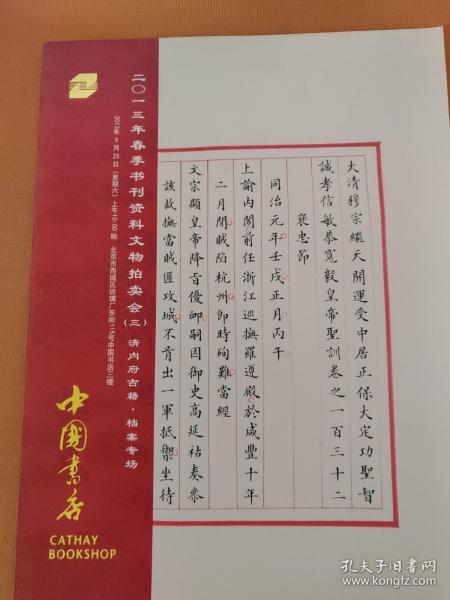 二〇一三年春季书刊资料文物拍卖会(三) 清内府古籍·档案专场
2013年5月25日(星期六)上午10:00始 北京市西城区琉璃厂东街115号中国书店三楼
中國書店
CATHAY
BOOKSHOP
大清穆宗繼天開運受中居正保大定功聖智
誠孝信敏恭寬毅皇帝聖訓卷之一百三十二
褒忠節
同治元年壬戌正月丙午
上諭內閣前任浙江巡撫羅遵殿於咸豐十年
二月間賊陷杭州卽時殉難當經
文宗顯皇帝降旨優卹嗣因御史高延祜奏參
該故撫當賊匪攻城不肯出一軍抵禦坐待
孔夫子旧书网
www.kongfz.com